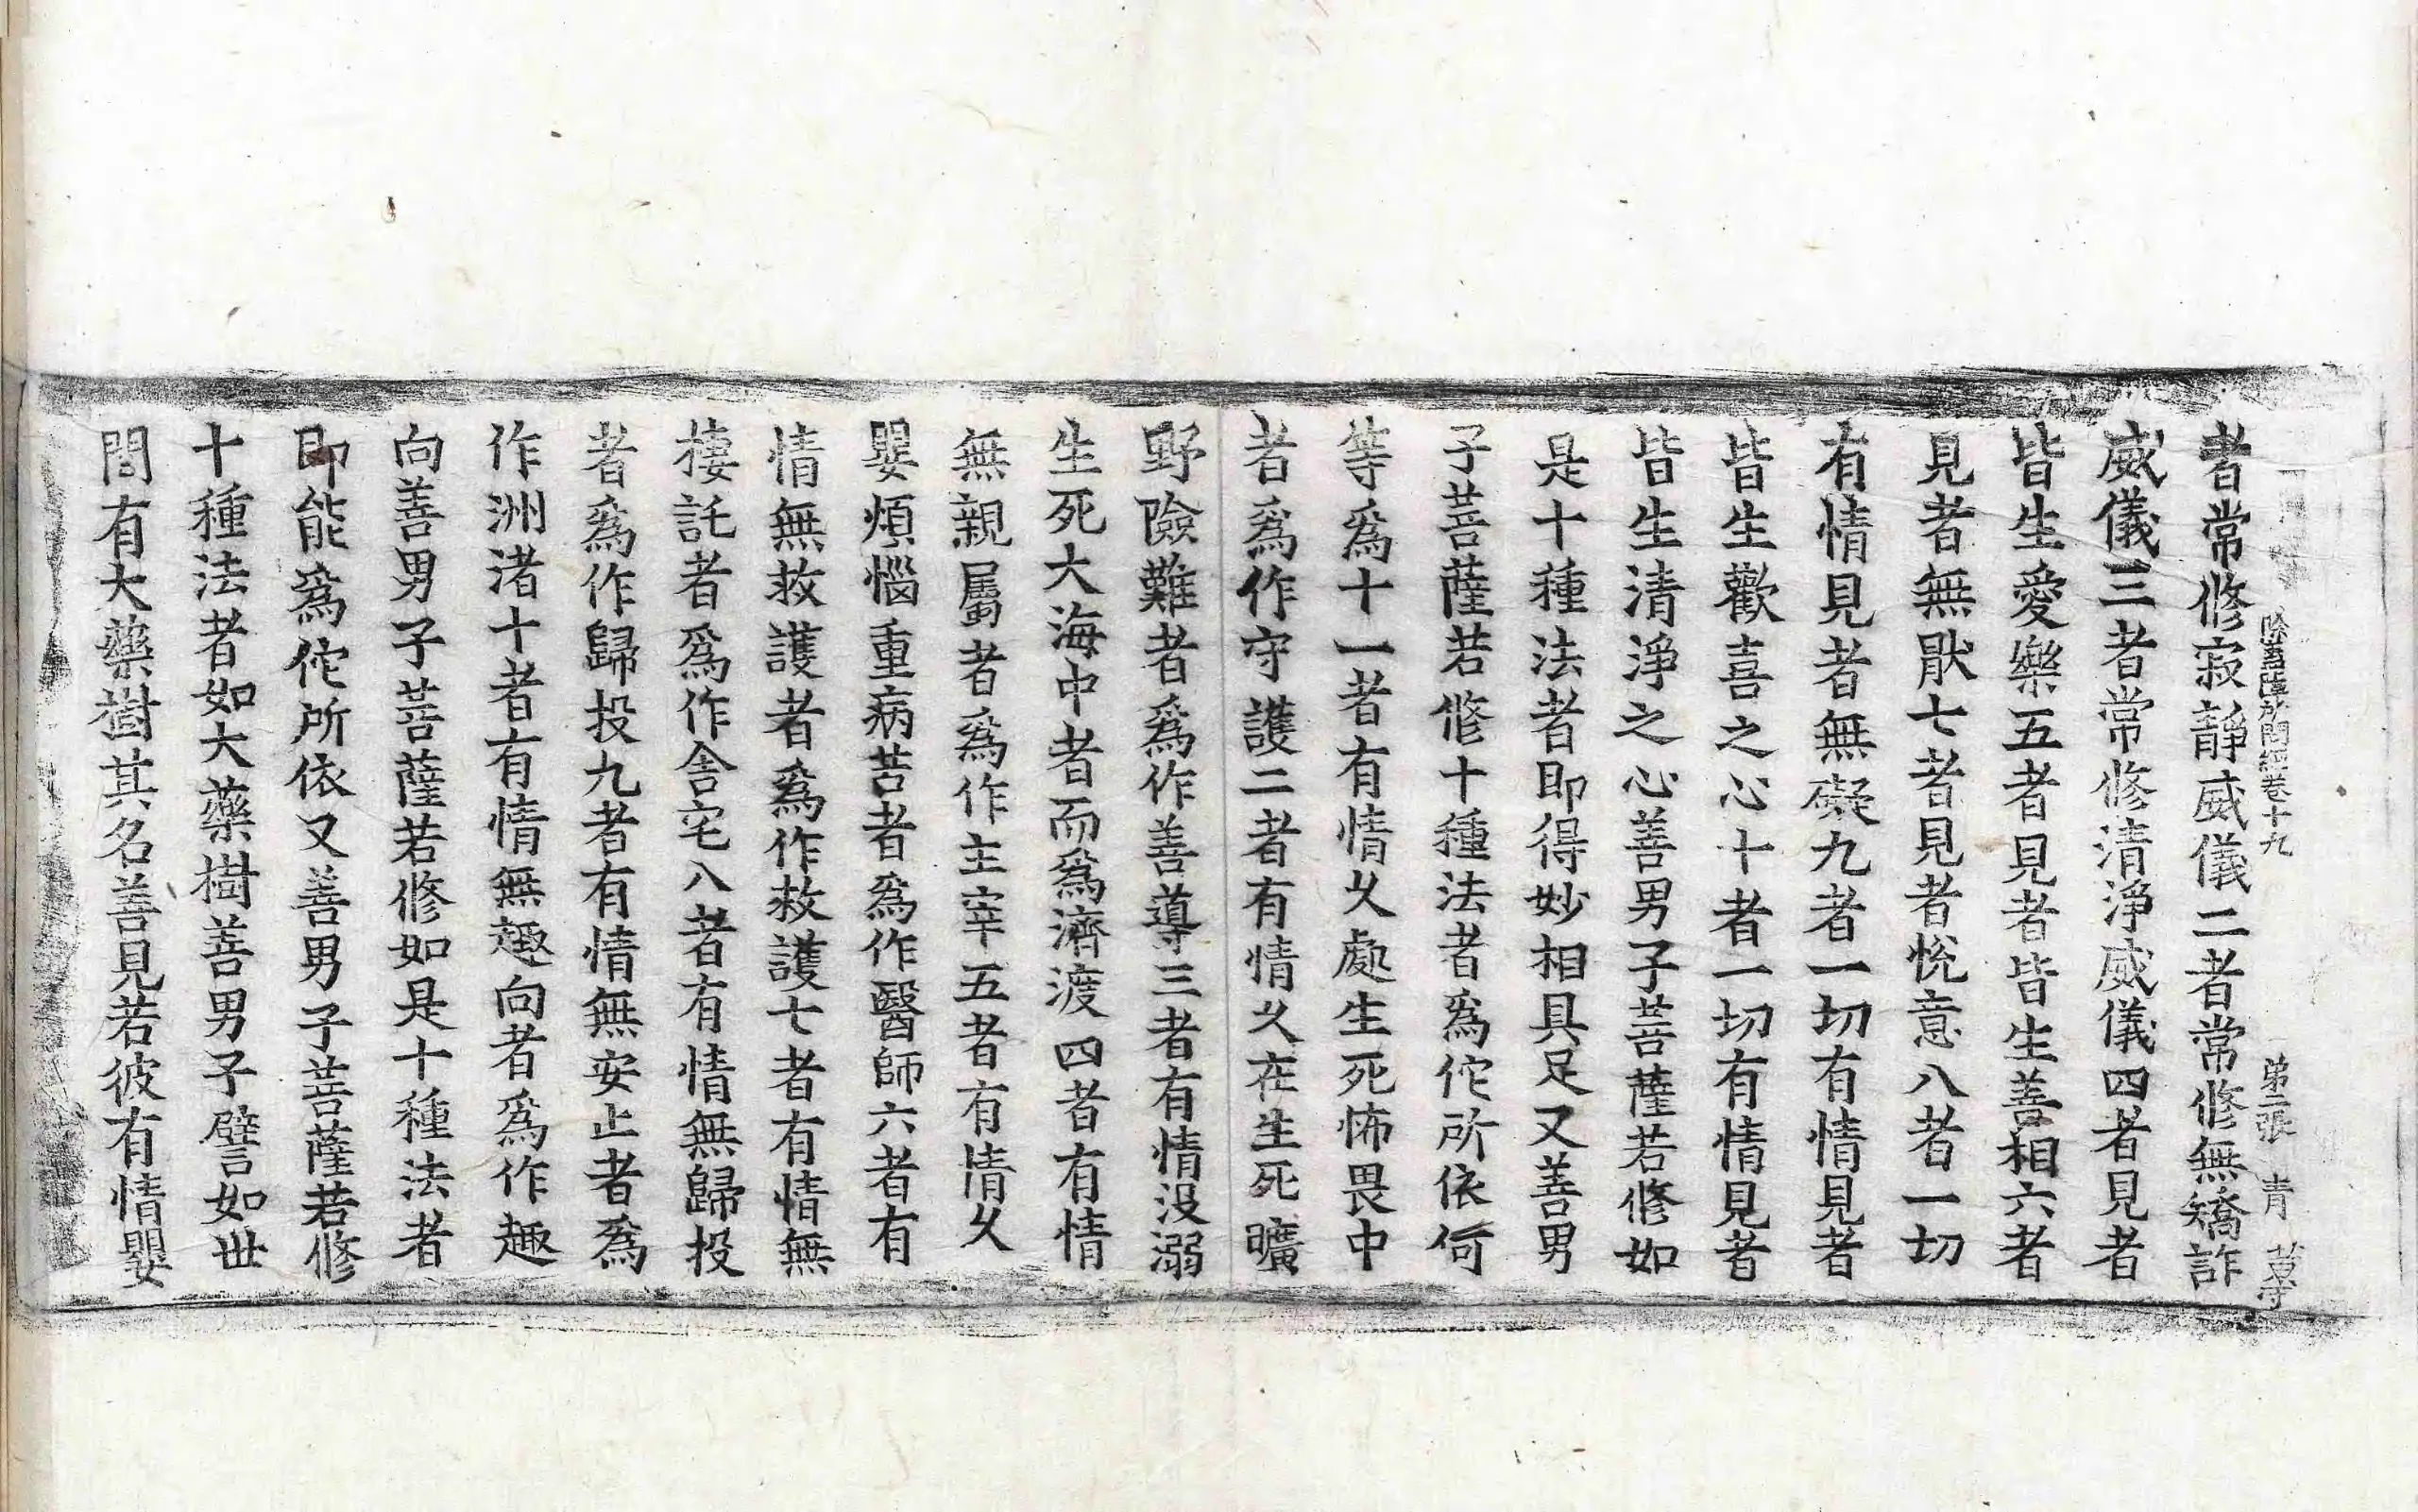 除蓋障菩薩所問經卷十九 第二張 青
者常修寂靜威儀二者常修無矯詐
威儀三者常修清淨威儀四者見者
皆生愛樂五者見者皆生善相六者
見者無猒七者見者悅意八者一切
有情見者無礙九者一切有情見者
皆生歡喜之心十者一切有情見者
皆生清淨之心善男子菩薩若修如
是十種法者即得妙相具足又善男
子菩薩若修十種法者爲佗所依何
等爲十一者有情久處生死怖畏中
者爲作守護二者有情久在生死曠
野險難者爲作善導三者有情沒溺
生死大海中者而爲濟渡四者有情
無親屬者爲作主宰五者有情久
嬰煩惱重病苦者爲作醫師六者有
情無救護者爲作救護七者有情無
棲託者爲作舍宅八者有情無歸投
者爲作歸投九者有情無安止者爲
作洲渚十者有情無趣向者爲作趣
向善男子菩薩若修如是十種法者
即能爲佗所依又善男子菩薩若修
十種法者如大藥樹善男子譬如世
間有大藥樹其名善見若彼有情嬰